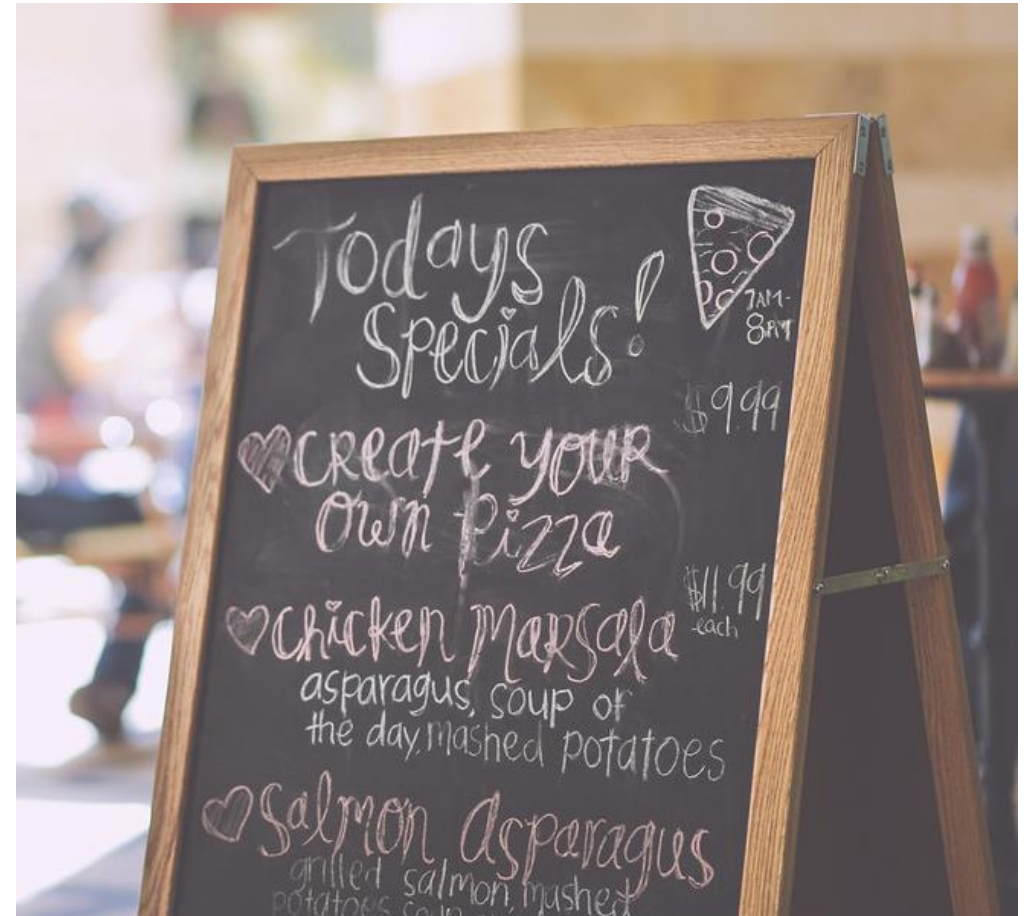 Todays
Specials!
7AM-
8PM
$9.99
Create your
own Pizza
$11.99
-each
Chicken Marsala
asparagus, soup of
the day, mashed potatoes
Salmon Asparagus
grilled salmon, mashed
potatoes, soup